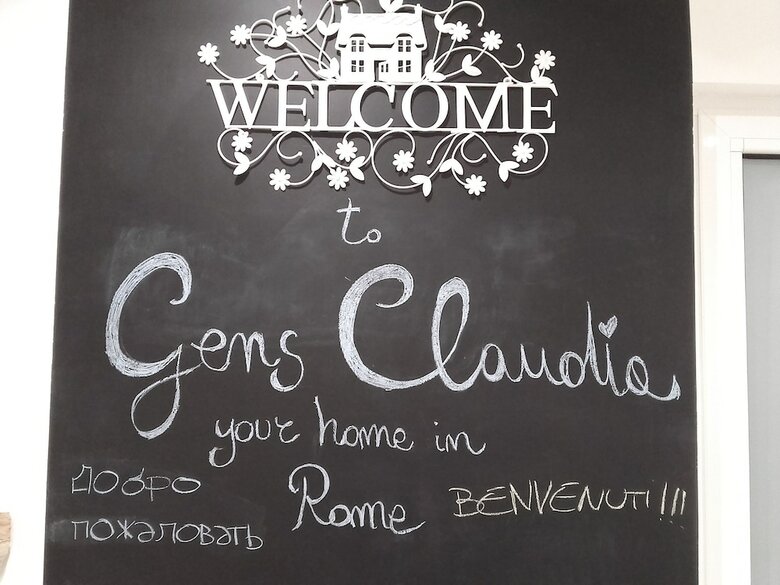 WELCOME
to
Gens Claudia
your home in
Rome
Добро
пожаловать
BENVENUTI!!!